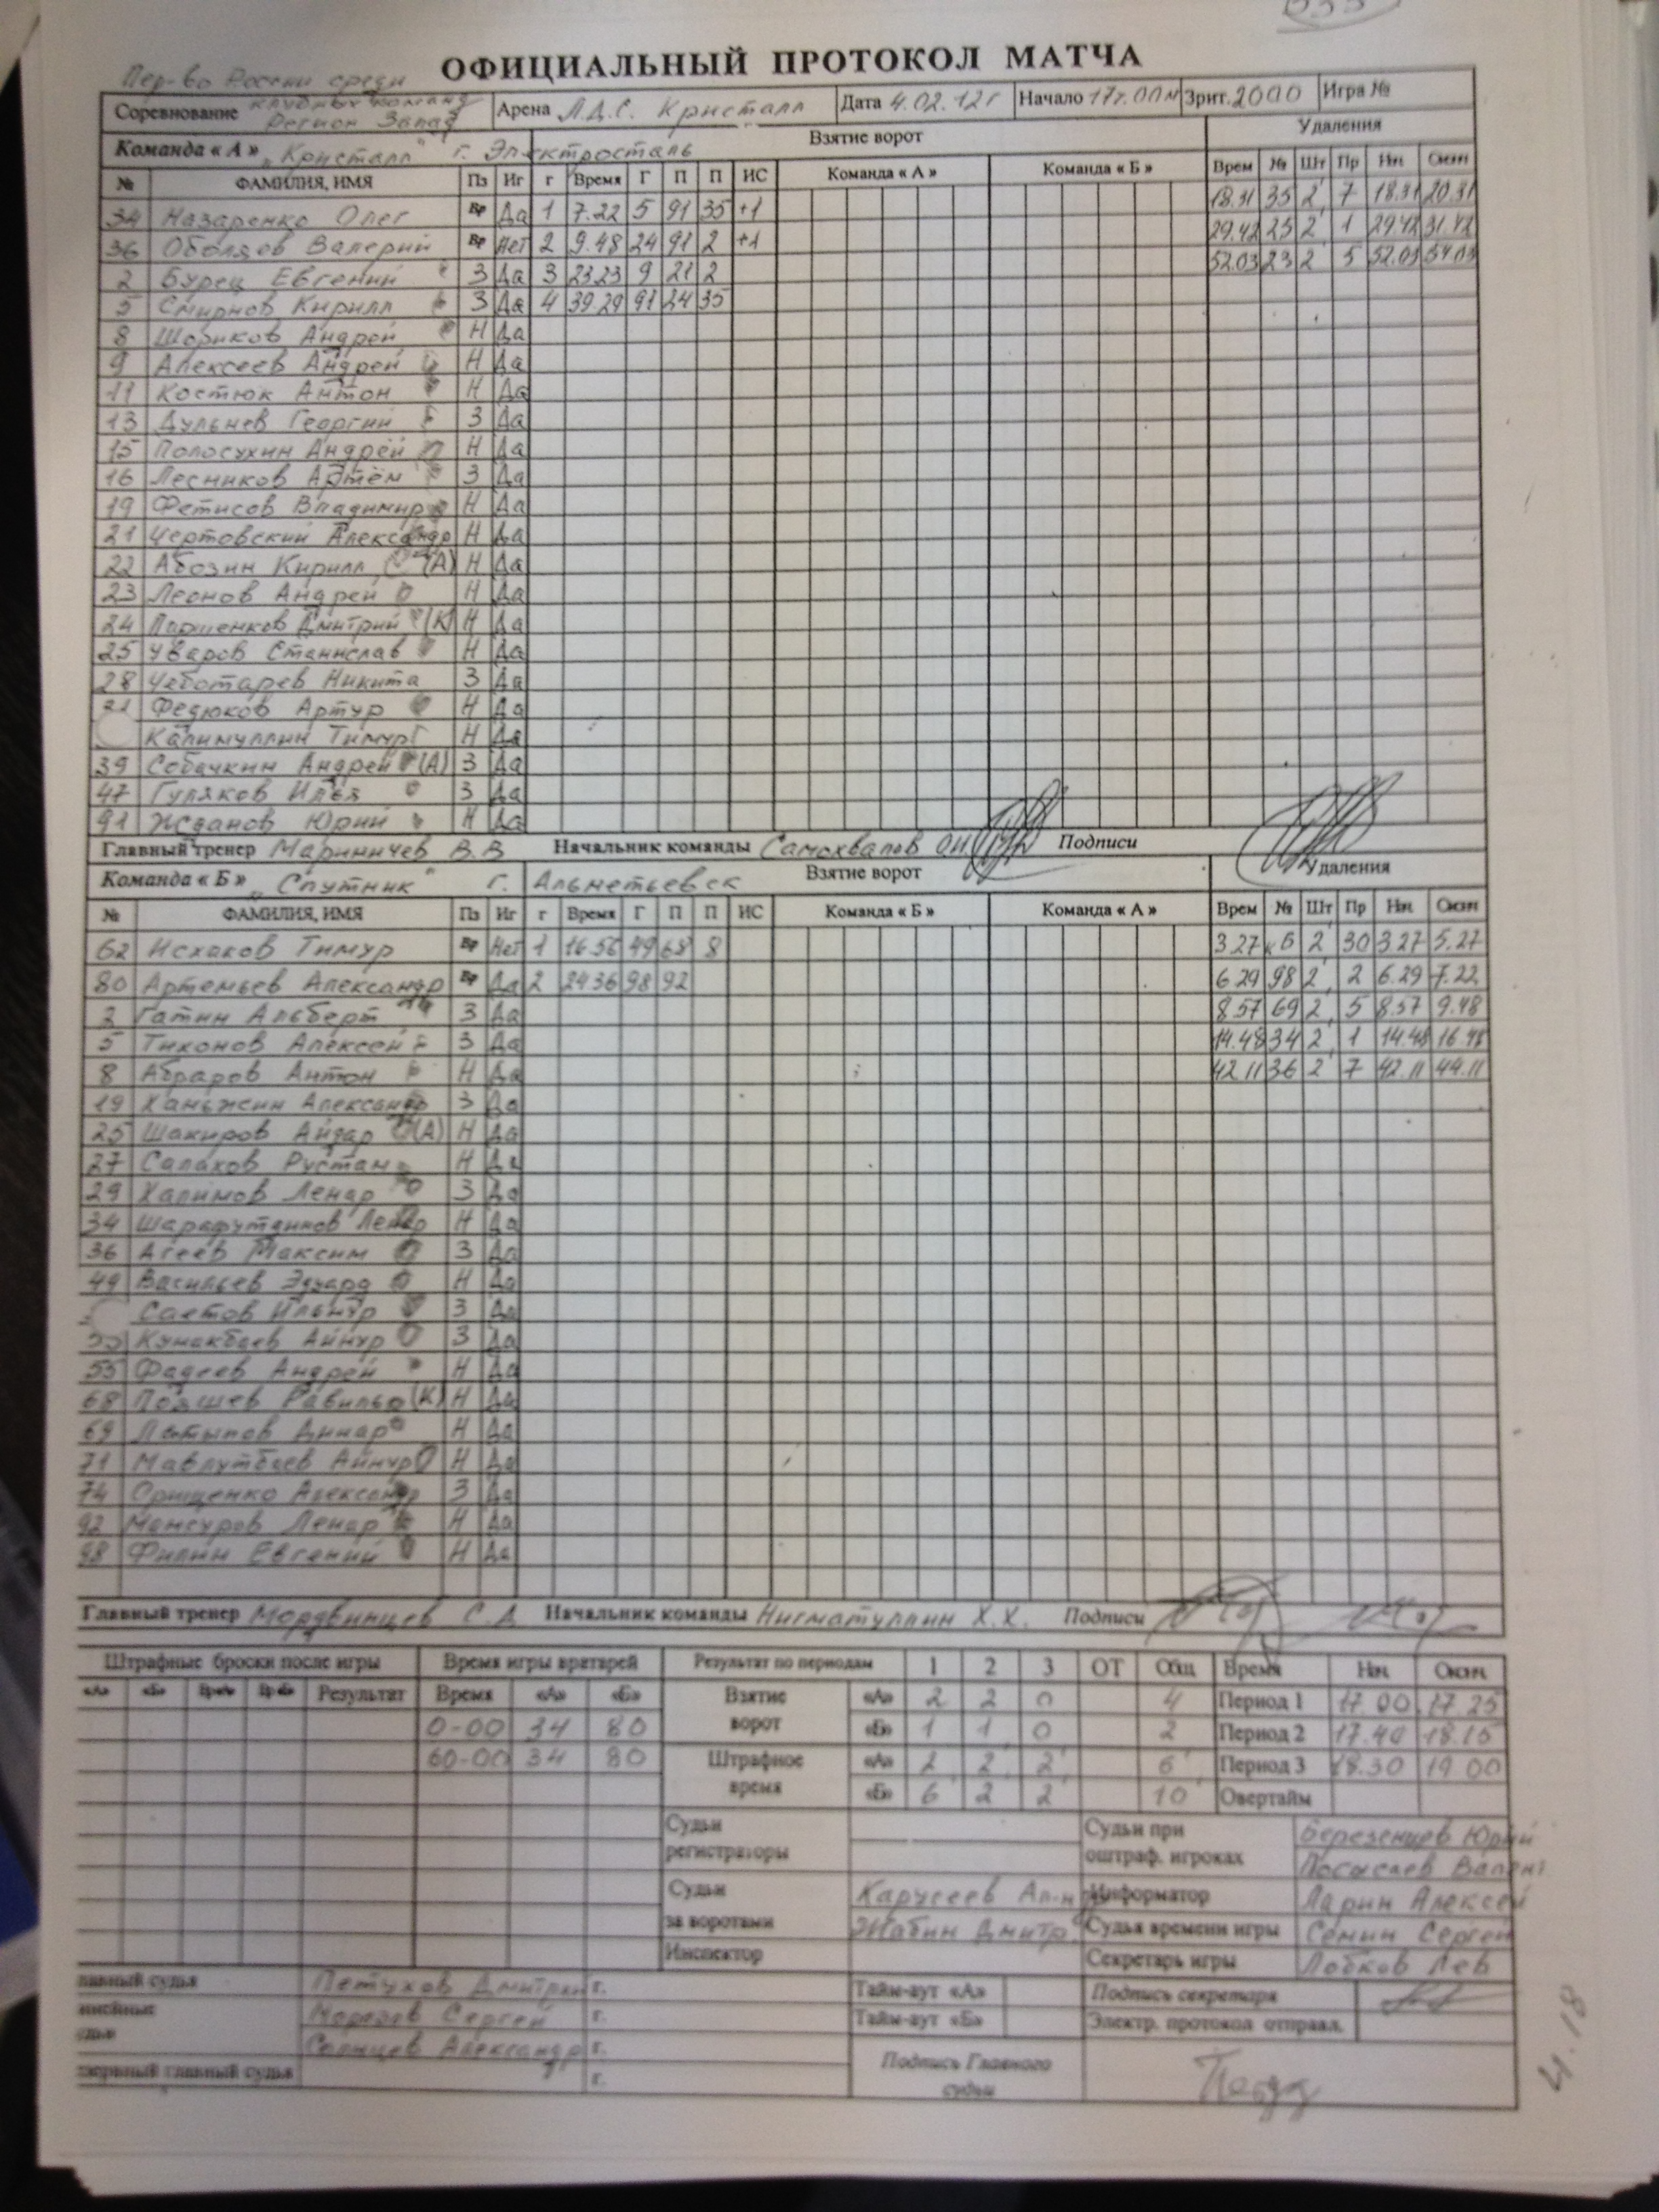 ОФИЦИАЛЬНЫЙ ПРОТОКОЛ МАТЧА
Пер-во России среди
Соревнование клубных команд Регион Запад Арена Л.Д.С. Кристалл Дата 4.02.12г Начало 17ч.00м Зрит. 2000 Игра №
Команда « А » „Кристалл" г. Электросталь Взятие ворот Удаления
№ ФАМИЛИЯ, ИМЯ Пз Иг г Время Г П П ИС Команда « А » Команда « Б » Врем № Шт Пр Нач Оконч
34 Назаренко Олег Вр Да 1 7.22 5 91 35 +1 18.31 35 2' 7 18.31 20.31
36 Оболяев Валерий Вр Нет 2 9.48 24 91 2 +1 29.42 25 2' 1 29.42 31.42
2 Бурец Евгений З Да 3 23.23 9 21 2 52.03 23 2' 5 52.03 54.03
5 Смирнов Кирилл З Да 4 39.29 91 24 35
8 Шориков Андрей Н Да
9 Алексеев Андрей Н Да
11 Костюк Антон Н Да
13 Дульнев Георгий З Да
15 Полосухин Андрей Н Да
16 Лесников Артём З Да
19 Фетисов Владимир Н Да
21 Чертовский Александр Н Да
22 Абозин Кирилл (А) Н Да
23 Леонов Андрей Н Да
24 Паршенков Дмитрий (К) Н Да
25 Уваров Станислав Н Да
28 Чеботарев Никита З Да
Федюков Артур Н Да
Калимуллин Тимур Н Да
39 Собачкин Андрей (А) З Да
47 Гуляков Илья З Да
91 Жданов Юрий Н Да
Главный тренер Мариничев В.В Начальник команды Самохвалов Подписи
Команда « Б » „Спутник" г. Альметьевск Взятие ворот Удаления
№ ФАМИЛИЯ, ИМЯ Пз Иг г Время Г П П ИС Команда « Б » Команда « А » Врем № Шт Пр Нач Оконч
62 Исхаков Тимур Вр Нет 1 16.56 49 68 8 3.27 кб 2' 30 3.27 5.27
80 Артемьев Александр Вр Да 2 24 36 98 92 6.29 98 2' 2 6.29 7.22
2 Гатин Альберт З Да 8.57 69 2' 5 8.57 9.48
5 Тихонов Алексей З Да 14.48 34 2' 1 14.48 16.48
8 Абраров Антон Н Да 42.11 36 2' 7 42.11 44.11
19 Ханьжин Александр З Да
25 Шакиров Айдар (А) Н Да
27 Салахов Рустам Н Да
29 Халимов Ленар З Да
34 Шарафутдинов Ленар Н Да
36 Агеев Максим З Да
49 Васильев Эдуард Н Да
Саетов Ильнур З Да
Кунакбаев Айнур З Да
55 Фадеев Андрей Н Да
68 Пояшев Равиль (К) Н Да
69 Латыпов Динар Н Да
71 Мавлутбаев Айнур Н Да
74 Александр З Да
92 Мансуров Ленар Н Да
98 Филин Евгений Н Да
Главный тренер Мордвинцев С.А Начальник команды Нигматуллин Х.Х. Подписи
Штрафные броски после игры Время игры вратарей Результат по периодам 1 2 3 ОТ Общ Время Нач. Оконч.
«А» «Б» Вр«А» Вр«Б» Результат Время «А» «Б» Взятие ворот «А» 2 2 0 4 Период 1 17.00 17.25
0-00 34 80 «Б» 1 1 0 2 Период 2 17.40 18.15
60-00 34 80 Штрафное время «А» 2 2 2 6 Период 3 18.30 19 00
«Б» 6 2 2 10 Овертайм
Судьи регистраторы Судьи при оштраф. игроках Березенцев Юрий
Судьи за воротами Карусеев Ал-др Информатор Ларин Алексей
Жабин Дмитр. Судья времени игры Семин Сергей
Инспектор Секретарь игры Лобков Лев
лавный судья Петухов Дмитрий г. Тайм-аут «А» Подпись секретаря
нейные Морозов Сергей г. Тайм-аут «Б» Электр. протокол отправл.
дьи Солнцев Александр г.
зервный главный судья г. Подпись Главного судьи